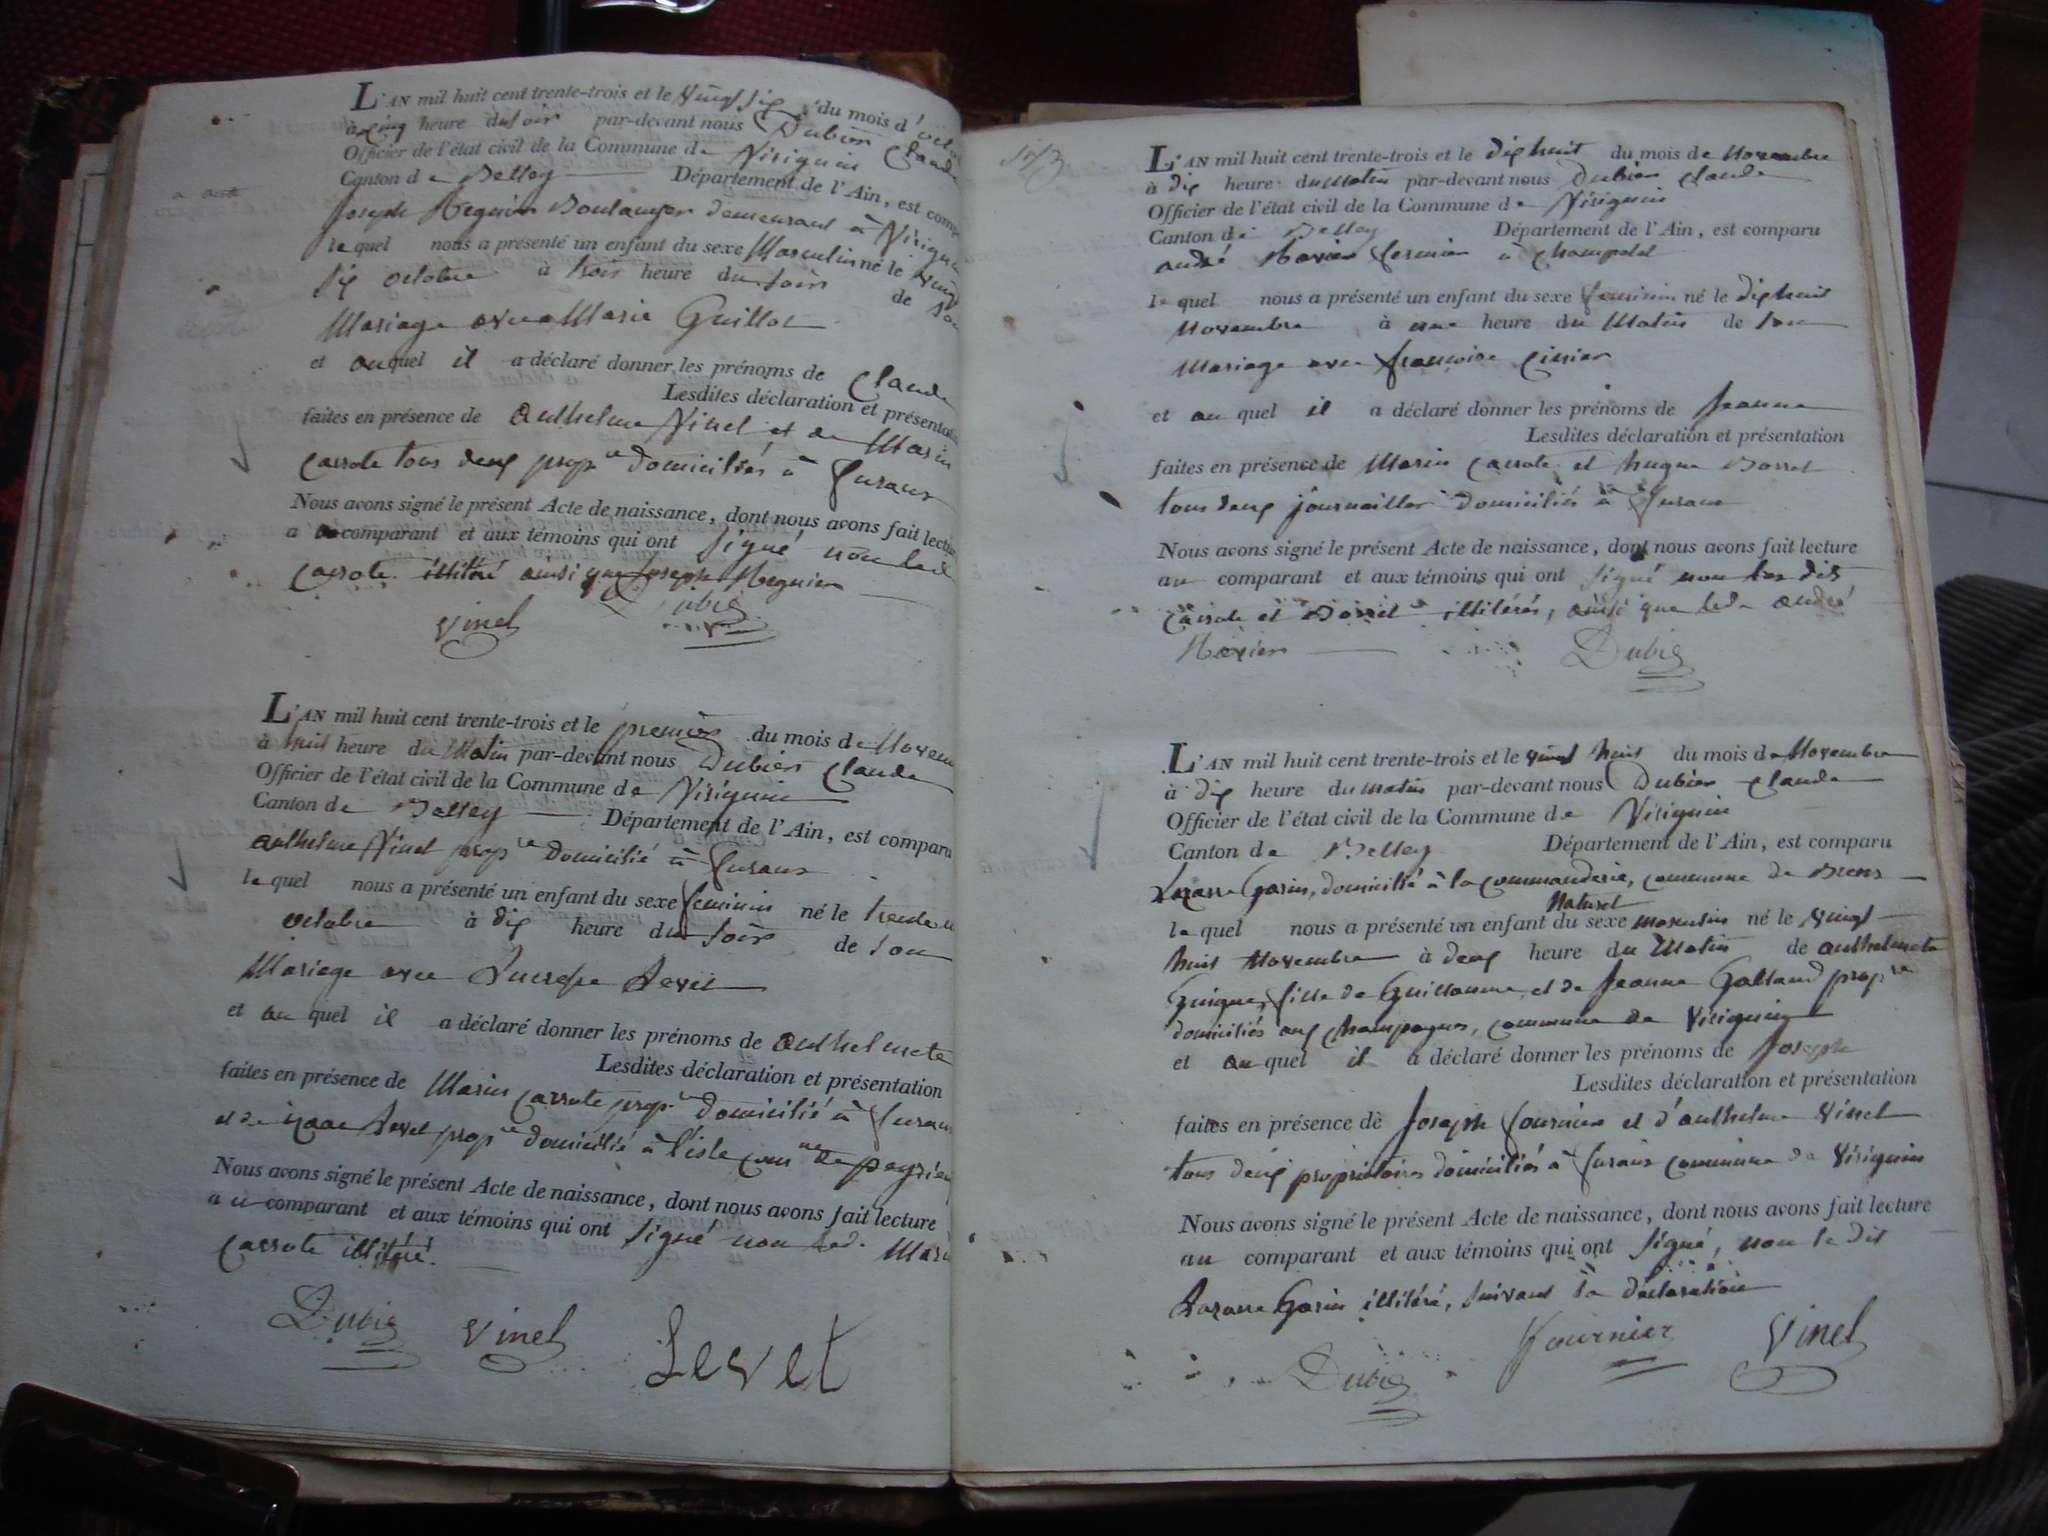 L'AN mil huit cent trente-trois et le vingt six du mois d'
à cinq heure du soir par-devant nous Dubien Claude
Officier de l'état civil de la Commune de Virignin
Canton de Belley Département de l'Ain, est comp
Joseph Reguin Boulanger demeurant à Virigni
le quel nous a présenté un enfant du sexe Masculin né le vingt
six octobre à trois heure du soir de son
Mariage avec Marie Guillot
et auquel il a déclaré donner les prénoms de Claude
Lesdites déclaration et présentati
faites en présence de Anthelme Vinel et de Marin
Carrote tous deux prop.re domiciliés à
Nous avons signé le présent Acte de naissance, dont nous avons fait lectu
au comparant et aux témoins qui ont signé non led
Carrote illitéré ainsi que Joseph
Vinel Dubien
L'AN mil huit cent trente-trois et le premier du mois de Novem
à huit heure du Matin par-devant nous Dubien Claude
Officier de l'état civil de la Commune de Virignin
Canton de Belley Département de l'Ain, est comparu
Anthelme Vinel prop.re domicilié à
le quel nous a présenté un enfant du sexe feminin né le trente
octobre à dix heure du soir de son
Mariage avec Lucresse Levet
et au quel il a déclaré donner les prénoms de Anthelmete
Lesdites déclaration et présentation
faites en présence de Marin Carrote prop.re domicilié à
et de Levet prop.re domicilié à l'isle com.ne de peyrieu
Nous avons signé le présent Acte de naissance, dont nous avons fait lecture
au comparant et aux témoins qui ont signé non led. Mari
Carrote illitéré.
Dubien Vinel Levet
L'AN mil huit cent trente-trois et le dix huit du mois de Novembre
à dix heure du Matin par-devant nous Dubien Claude
Officier de l'état civil de la Commune de Virignin
Canton de Belley Département de l'Ain, est comparu
André fermier à
le quel nous a présenté un enfant du sexe feminin né le dix huit
Novembre à une heure du Matin de son
Mariage avec françoise
et au quel il a déclaré donner les prénoms de Jeanne
Lesdites déclaration et présentation
faites en présence de Marin Carrote et hugue Borret
tous deux journaillier domiciliés à
Nous avons signé le présent Acte de naissance, dont nous avons fait lecture
au comparant et aux témoins qui ont signé non les dits
Carrote et Borret illitérés, ainsi que led. André
Dubien
L'AN mil huit cent trente-trois et le vingt huit du mois de Novembre
à dix heure du Matin par-devant nous Dubien Claude
Officier de l'état civil de la Commune de Virignin
Canton de Belley Département de l'Ain, est comparu
Lazarre Garin, domicilié à la commanderie, commune de Brens
Naturel
le quel nous a présenté un enfant du sexe masculin né le vingt
huit Novembre à deux heure du Matin de anthelmete
fille de Guillaume et de Jeanne Galland prop.re
domiciliés aux champagnes, commune de Virignin
et au quel il a déclaré donner les prénoms de Joseph
Lesdites déclaration et présentation
faites en présence de Joseph fournier et d'anthelme Vinel
tous deux propriétaires domiciliés à commune de Virignin
Nous avons signé le présent Acte de naissance, dont nous avons fait lecture
au comparant et aux témoins qui ont signé, non le dit
Lazarre Garin illitéré, suivant sa déclaration
Dubien fournier Vinel